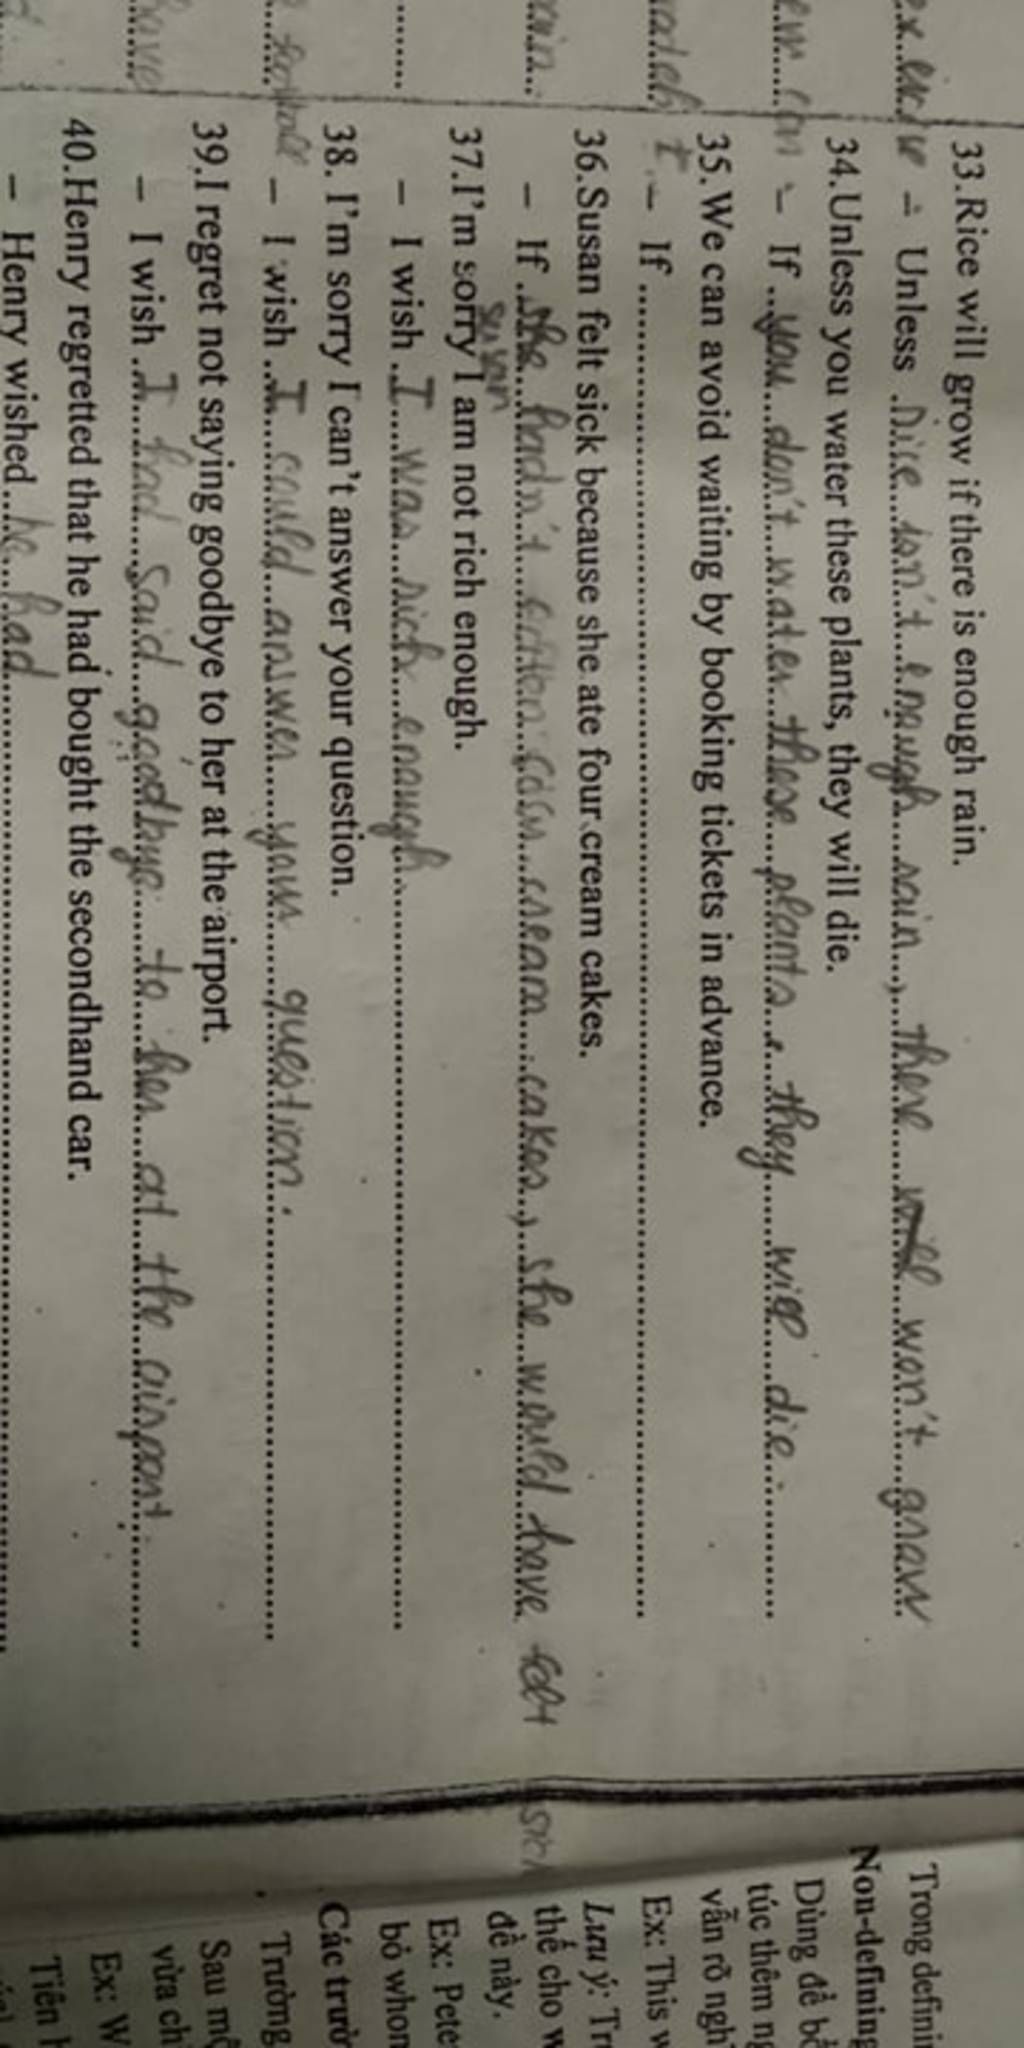 33.Rice will grow if there is enough rain.
– Unless .Rice isn't enough rain, there won't grow
34.Unless you water these plants, they will die.
– If ..you don't water these plants, they will die.
35.We can avoid waiting by booking tickets in advance.
– If ..........
36.Susan felt sick because she ate four cream cakes.
Susan
– If hadn't cream cakes, she would have felt sick
37.I'm sorry I am not rich enough.
– I wish .I was rich enough.
38. I'm sorry I can't answer your question.
– I wish ..I could answer your question.
39.I regret not saying goodbye to her at the airport.
– I wish ..I had said goodbye to her at the airport.
40.Henry regretted that he had bought the secondhand car.
– Henry wished...he had
Trong
Non-defining
Dùng để
túc thêm
vẫn rõ
Ex: This
Lưu ý:
thế cho
đề này.
Ex:
bỏ
Các
Trường
Sau
vừa
Ex:
Tiên
have